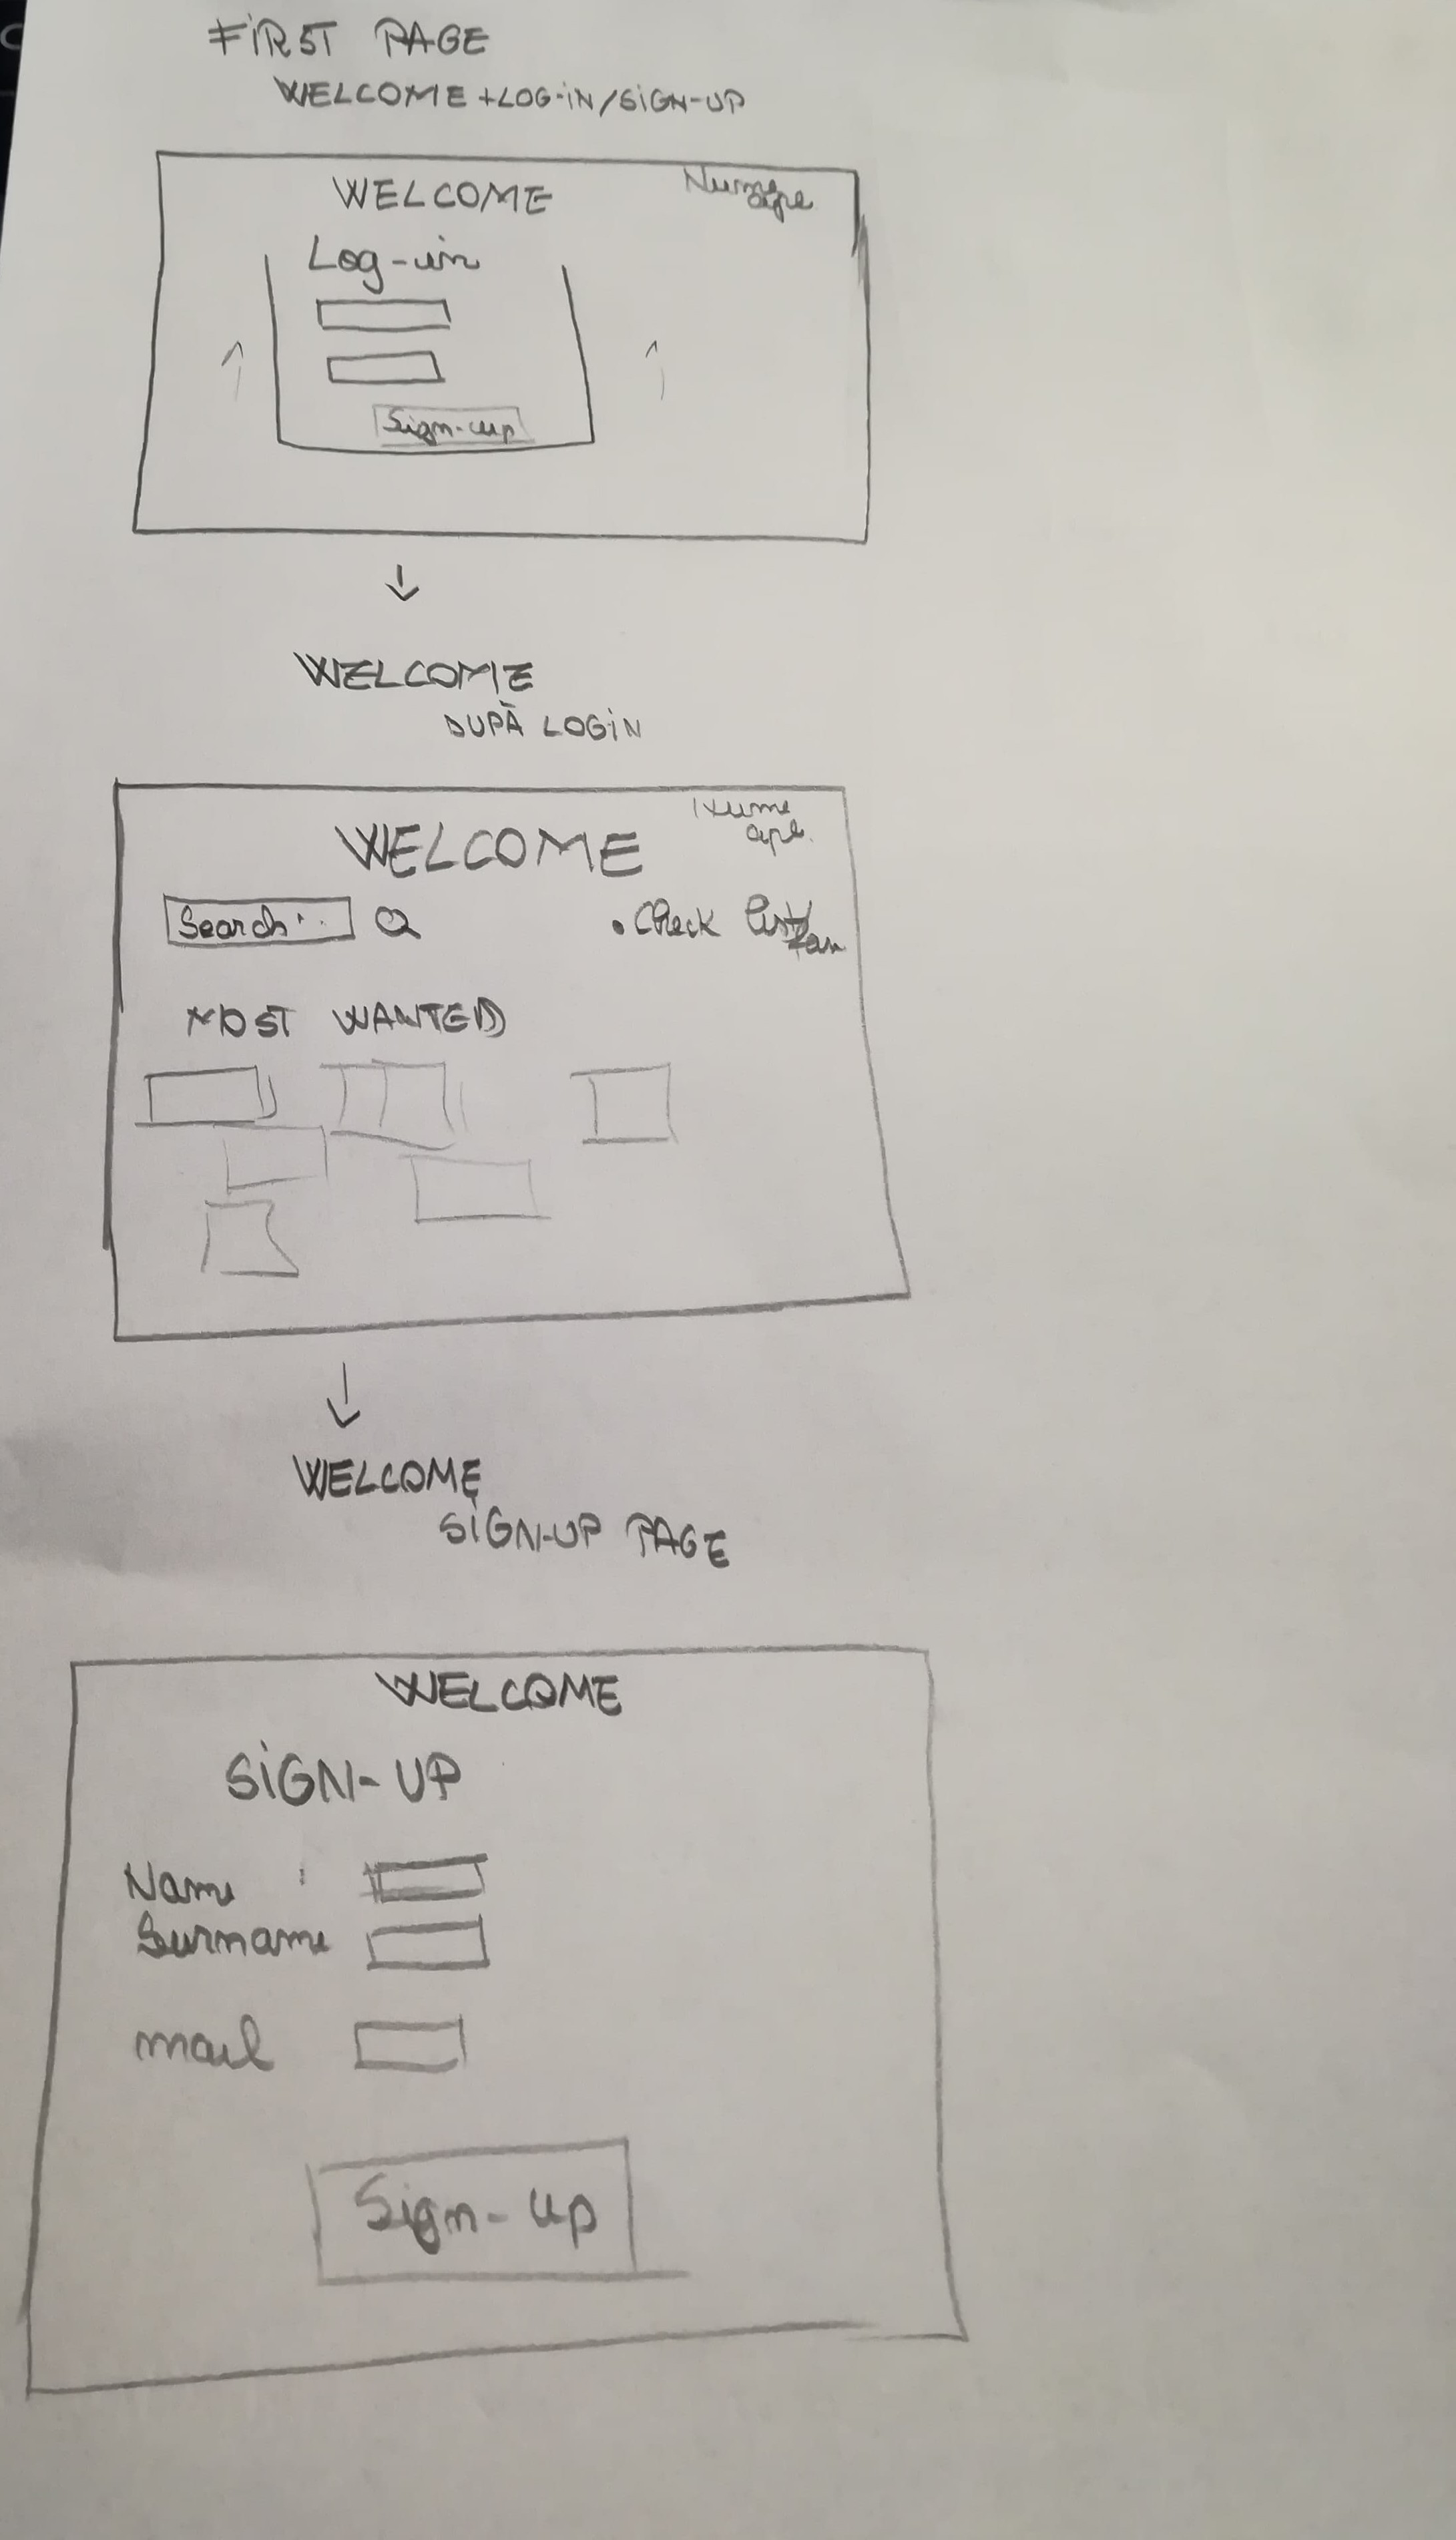 FIRST PAGE
WELCOME + LOG-IN/SIGN-UP
WELCOME
Log-in
Sign-up
WELCOME
DUPĂ LOGIN
Nume
WELCOME
ape.
Search...
• Check list
MOST WANTED
WELCOME
SIGN-UP PAGE
WELCOME
SIGN-UP
Name :
Surname
mail
Sign-up